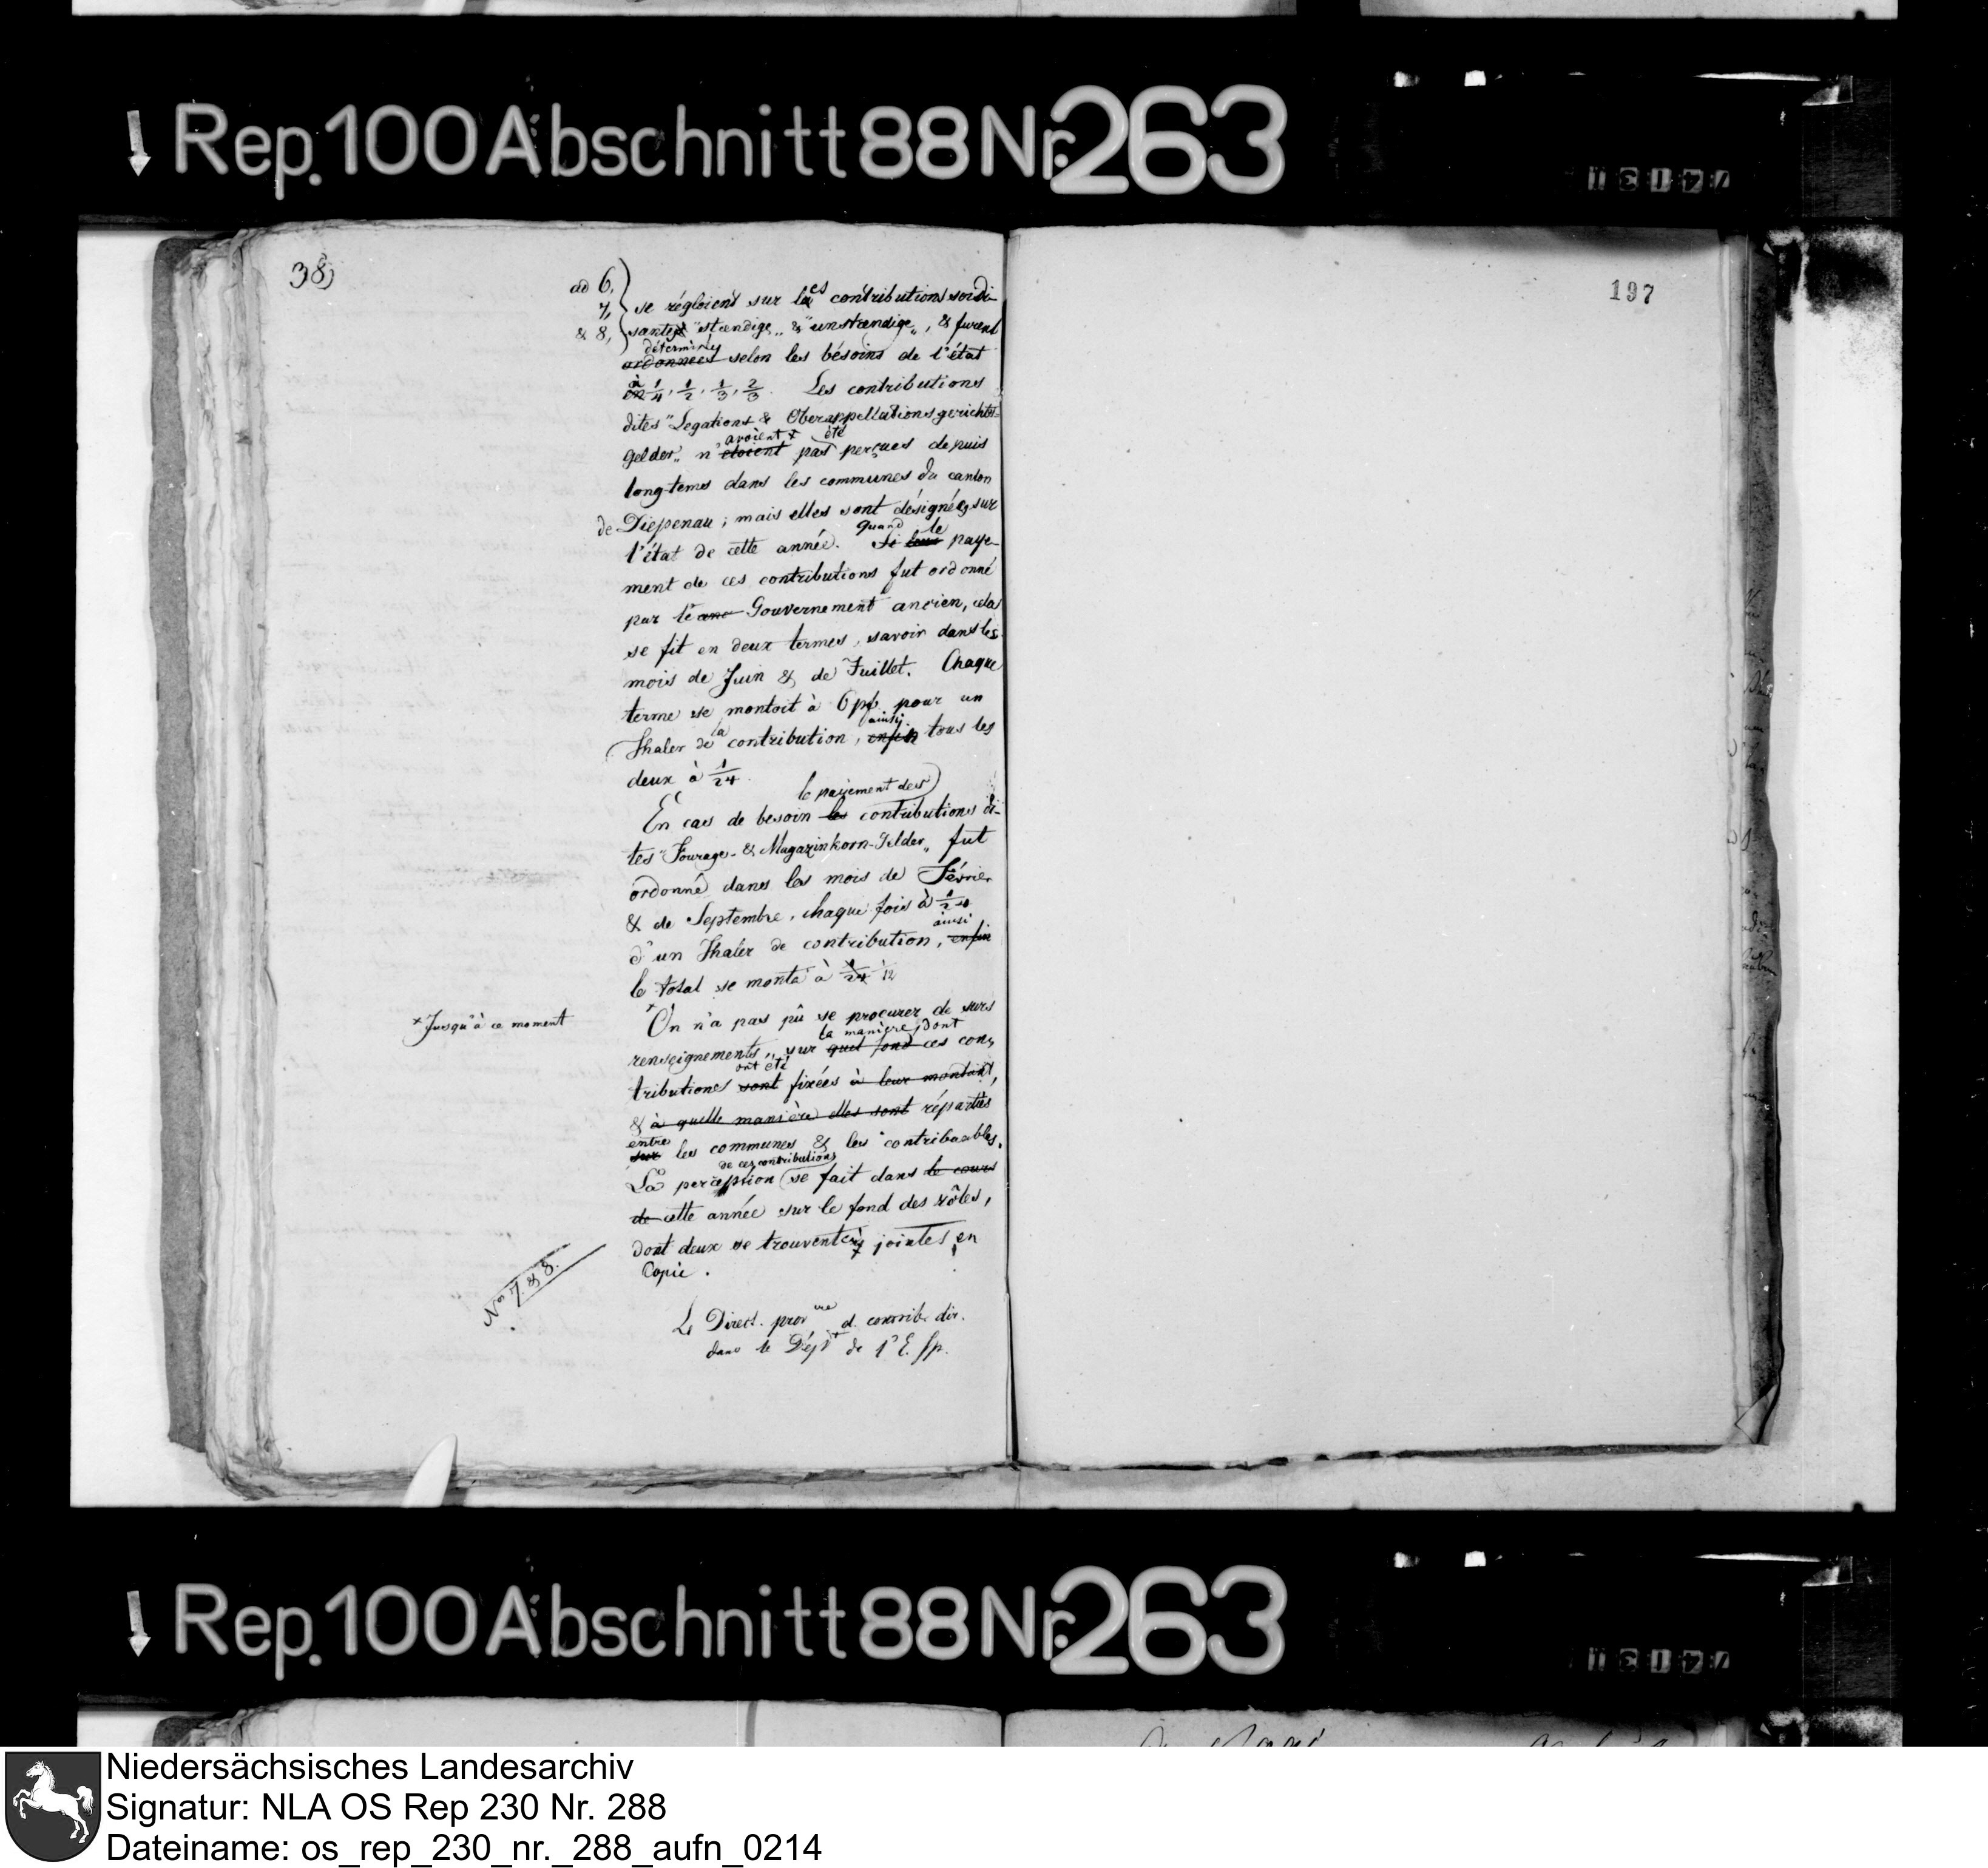 Rep. 100 Abschnitt 88 Nr. 263
38)
197
ad 6,
7, se régloient sur les contributions soidi-
& 8, santes "stændige" & "unstændige", & furent
déterminés
ordonnées selon les bésoins de l'état
à
en 1/4, 1/2, 1/3, 2/3. Les contributions
dites "Legations & Oberappellationsgerichts-
avoient été
gelder" n'étoient pas perçues depuis
long-tems dans les communes du canton
de Diepenau; mais elles sont désignées sur
quand le
l'état de cette année. Si leur paye-
ment de ces contributions fut ordonné
par le anc Gouvernement ancien, cela
se fit en deux termes, savoir dans les
mois de Juin & de Juillet. Chaque
terme se montoit à 6 pf. pour un
la ainsi
Thaler de contribution, enfin tous les
deux à 1/24.
le payement des
En cas de besoin les contributions di-
tes "Fourage- & Magazinkorn-Gelder" fut
ordonné dans les mois de Février
& de Septembre, chaque fois à 1/24
ainsi
d'un Thaler de contribution, enfin
le total se monta à 1/24 1/12
× Jusqu'à ce moment
× On n'a pas pû se procurer de surs
la manière, dont
renseignements, sur quel fond ces con-
ont été
tributions sont fixées à leur montant,
& à quelle manière elles sont réparties
entre
sur les communes & les contribuables.
de ces contributions
La perception se fait dans le cours
de cette année sur le fond des rôles,
dont deux se trouvent cy jointes en
Copie.
Nos 7. & 8.
Le Direct. prov d. contrib. dir.
dans le Dépt de l'E. Sp.
Rep. 100 Abschnitt 88 Nr. 263
Niedersächsisches Landesarchiv
Signatur: NLA OS Rep 230 Nr. 288
Dateiname: os_rep_230_nr._288_aufn_0214